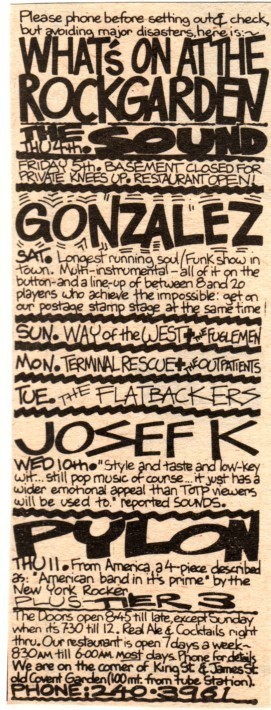 Please phone before setting out & check,
but avoiding major disasters, here is:~
WHAT'S ON AT THE
ROCKGARDEN
THU 4th. THE SOUND
FRIDAY 5th. BASEMENT CLOSED FOR
PRIVATE KNEES UP. RESTAURANT OPEN!
GONZALEZ
SAT. Longest running soul/Funk show in
Town. Multi-instrumental - all of it on the
button-and a line-up of between 8 and 20
players who achieve the impossible: get on
our postage stamp stage at the same time!
SUN. WAY of the WEST + THE FUGLEMEN
MON. TERMINAL RESCUE + THE OUTPATIENTS
TUE. THE FLATBACKERS
JOSEF K
WED 10th. "Style and taste and low-key
wit... still pop music of course... it just has a
wider emotional appeal than TOTP viewers
will be used to." reported SOUNDS.
PYLON
THU 11. From America, a 4-piece described
as: "American band in it's prime" by the
New York Rocker
PLUS - TIER 3
The Doors open 8.45 till late, except Sunday
when its 7.30 till 12. Real Ale & Cocktails night
thru. Our restaurant is open 7 days a week~
8.30AM till 6.00AM most days. Phone for details
We are on the corner of King St. & James St.
old Covent Garden (100 mt. from Tube Station).
PHONE: 240-3961